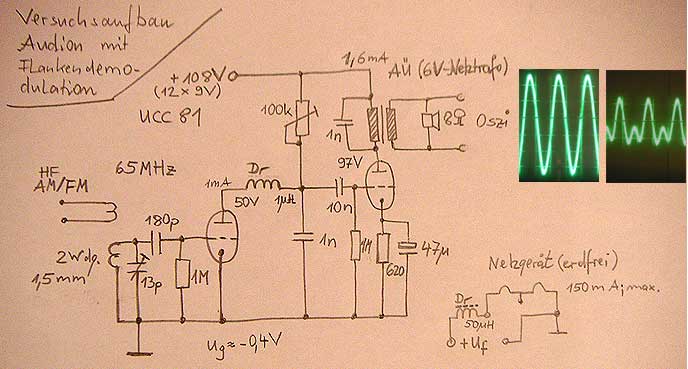 Versuchsaufbau
Audion mit
Flankendemo-
dulation
+108V
(12 x 9V)
UCC 81
1,6mA
AÜ (6V-Netztrafo)
100k
1n
8Ω
Oszi
97V
HF
AM/FM
65MHz
Dr
1mA
50V
1µH
10n
180p
2Wdg.
1,5mm
13p
1M
1n
1M
620
47µ
Ug ≈ -0,4V
Netzgerät (erdfrei)
150mA; max.
Dr
50µH
+Uf